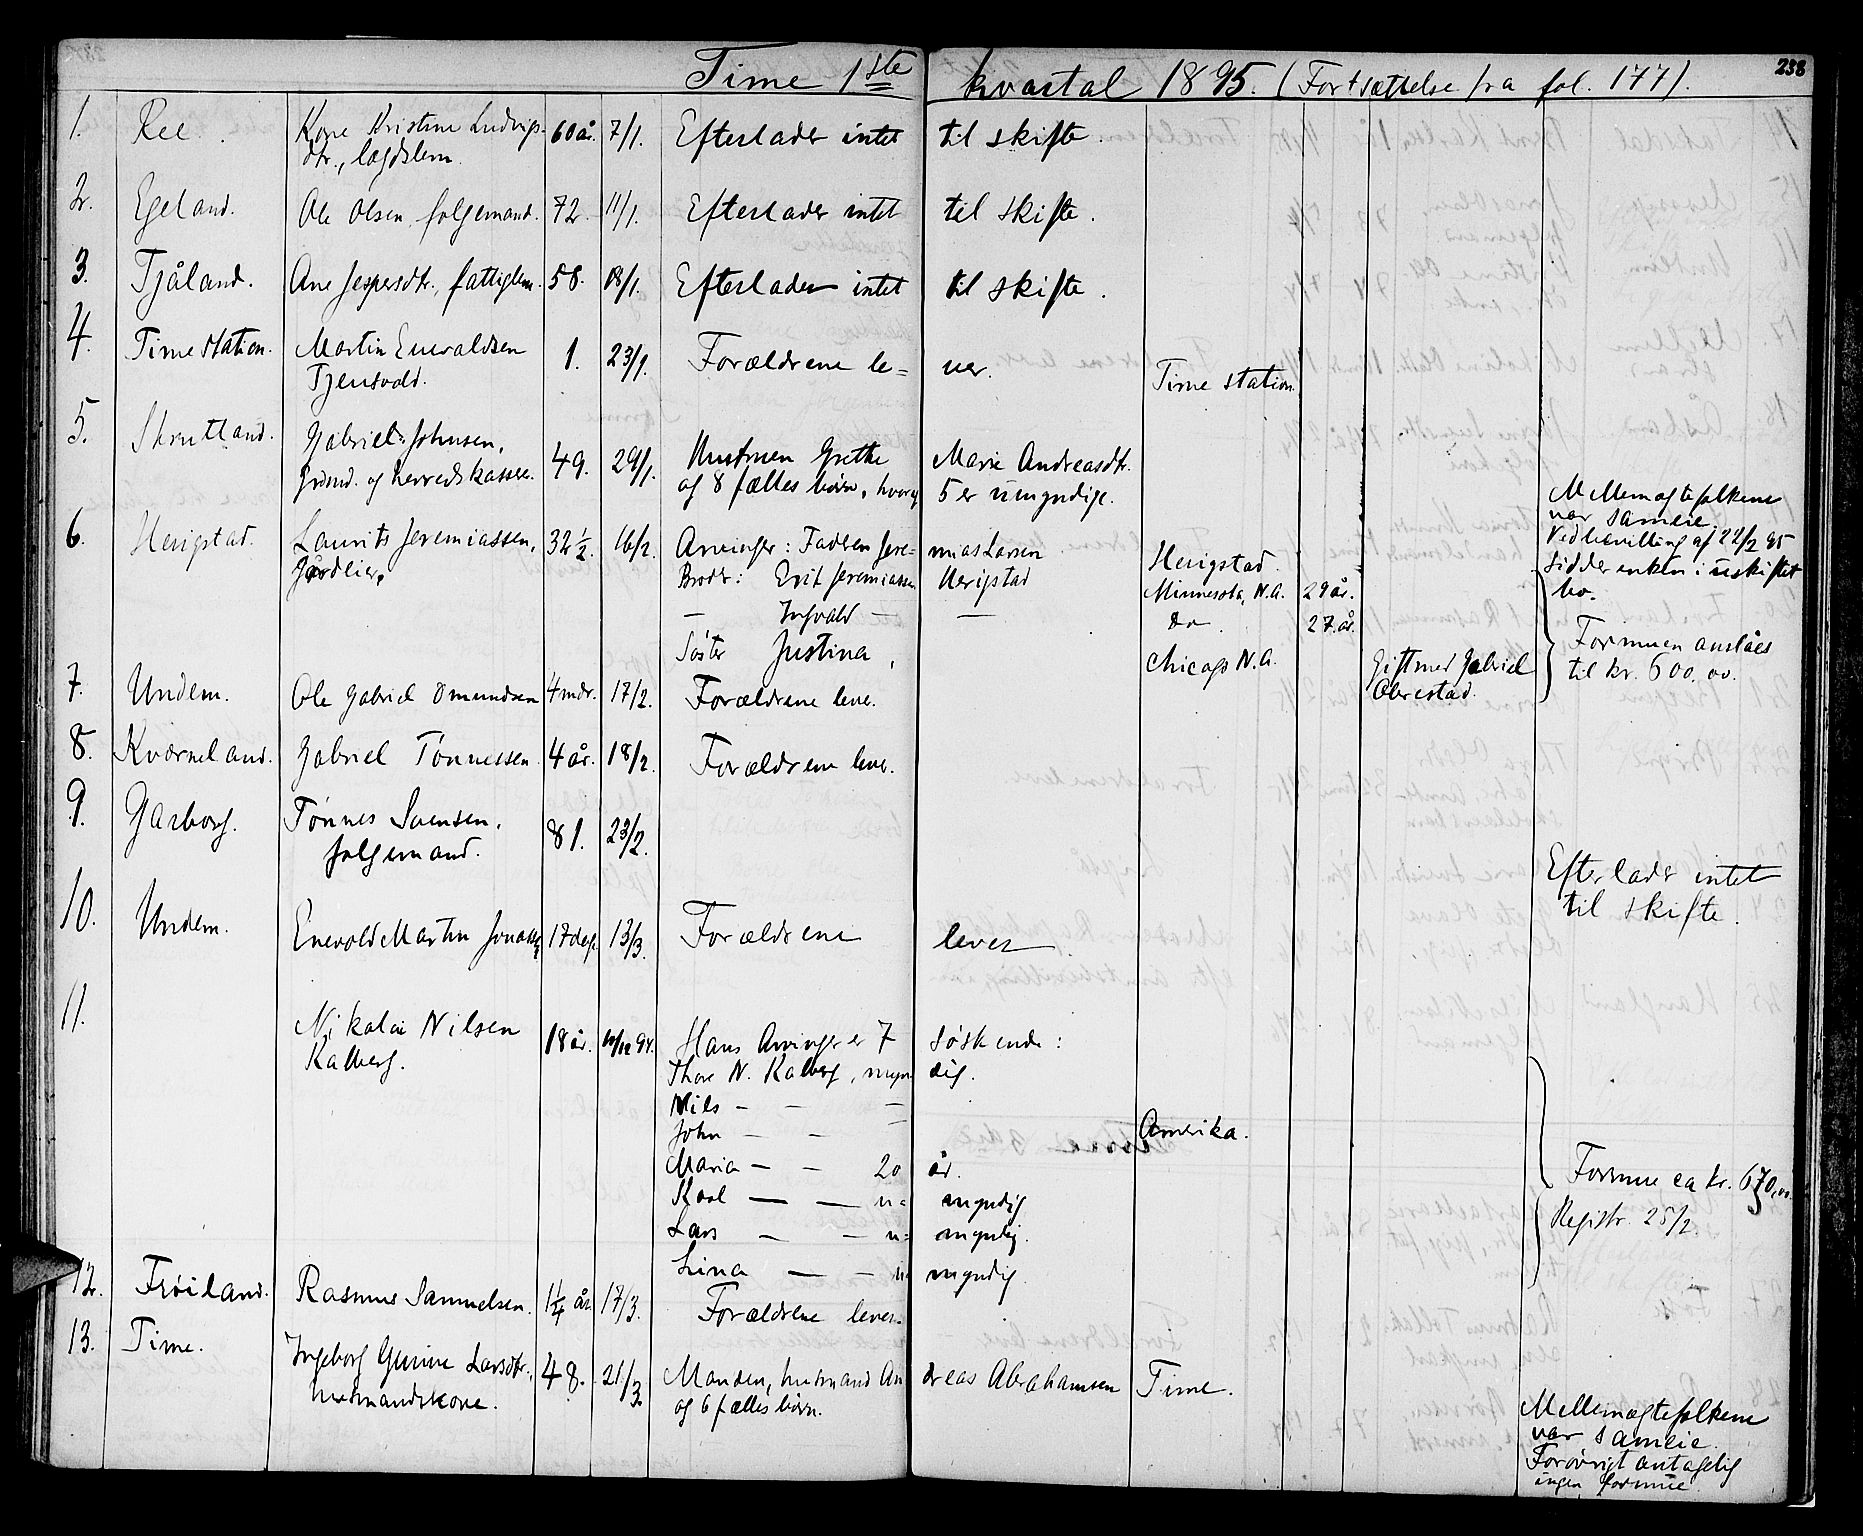 Time 1ste kvartal 1895. (Fortsættelse fra fol. 177). 238
1. Ree. Kone Kristine Ludvigs- 60 år. 7/1. Efterlader intet til skifte.
dtr., lægdslem.
2. Egeland. Ole Olsen, følgemand. 72. 11/1. Efterlader intet til skifte.
3. Tjåland. Ane Jespersdtr., fattiglem. 58. 18/1. Efterlader intet til skifte.
4. Time station. Martin Enevaldsen 1. 23/1. Forældrene le= ver. Time station.
Tjensvold.
5. Skrutland. Gabriel Johnsen, 49. 29/1. Hustruen Grethe Marie Andreasdtr.
Grdmd. og herredskasser. og 8 fælles børn, hvoraf 5 er umyndige.
Mellem ægtefolkene
var sameie.
Ved bevilling af 22/2 95
sidder enken i uskiftet
bo.
6. Herigstad. Laurits Jeremiassen, 32 1/2. 16/2. Arvinger: Faderen Jere- mias Larsen Herigstad.
Gårdeier. Broder: Erik Jeremiassen Herigstad Minnesota, N.A. 29 år.
— Ingvald — — do. 27 år.
Søster Justina, Chicago N.A. Gift med Gabriel
Obrestad.
Formuen anslåes
til kr. 600,00.
7. Undem. Ole Gabriel Omundsen 4 mdr. 17/2. Forældrene lever.
8. Kværneland. Gabriel Tønnessen. 4 år. 18/2. Forældrene lever.
9. Garborg. Tønnes Svensen, 81. 23/2.
følgemand.
Efterlader intet
til skifte.
10. Undem. Enevold Martin Jonassen 17 dage 13/3. Forældrene lever
11. Nikolai Nilsen 18 år. 94. Hans Arvinger er 7 søskende:
Kalberg. Thore N. Kalberg, myn- dig.
Nils — — —
John — — — Amerika.
Maria — — 20 år.
Karl — — u= myndig
Lars — — u= myndig.
Lina — — u= myndig.
Formue ca kr. 670,00.
Registr. 25/2.
12. Frøiland. Rasmus Samuelsen. 1 1/4 år 17/3. Forældrene lever.
13. Time. Ingeborg Gurine Larsdtr., 48. 21/3. Manden, husmand An dreas Abrahamsen Time.
husmandskone. og 6 fælles børn.
Mellem ægtefolkene
var sameie.
Forøvrigt antagelig
ingen formue.